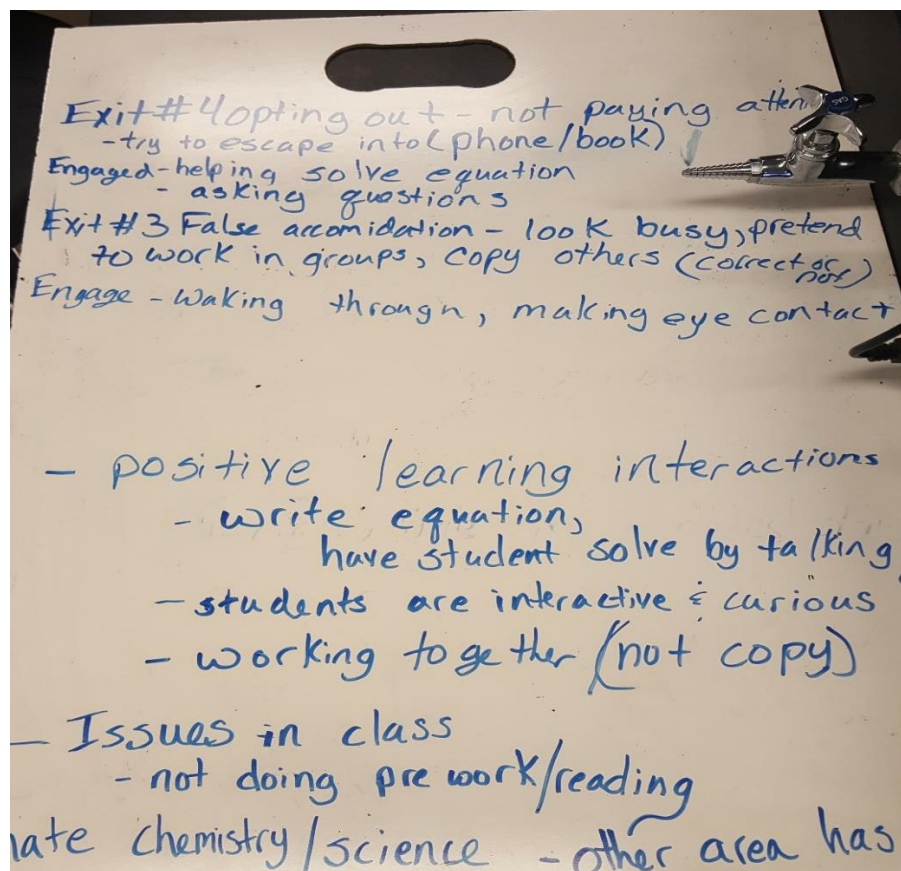 Exit #4 opting out - not paying
- try to escape into (phone/book)
Engaged - helping solve equation
- asking questions
Exit #3 False accomidation - look busy, pretend
to work in groups, copy others (correct or not)
Engage - waking through, making eye contact
- positive learning interactions
- write equation,
have student solve by talking
- students are interactive & curious
- working together (not copy)
- Issues in class
- not doing pre work/reading
chemistry/science - other area has